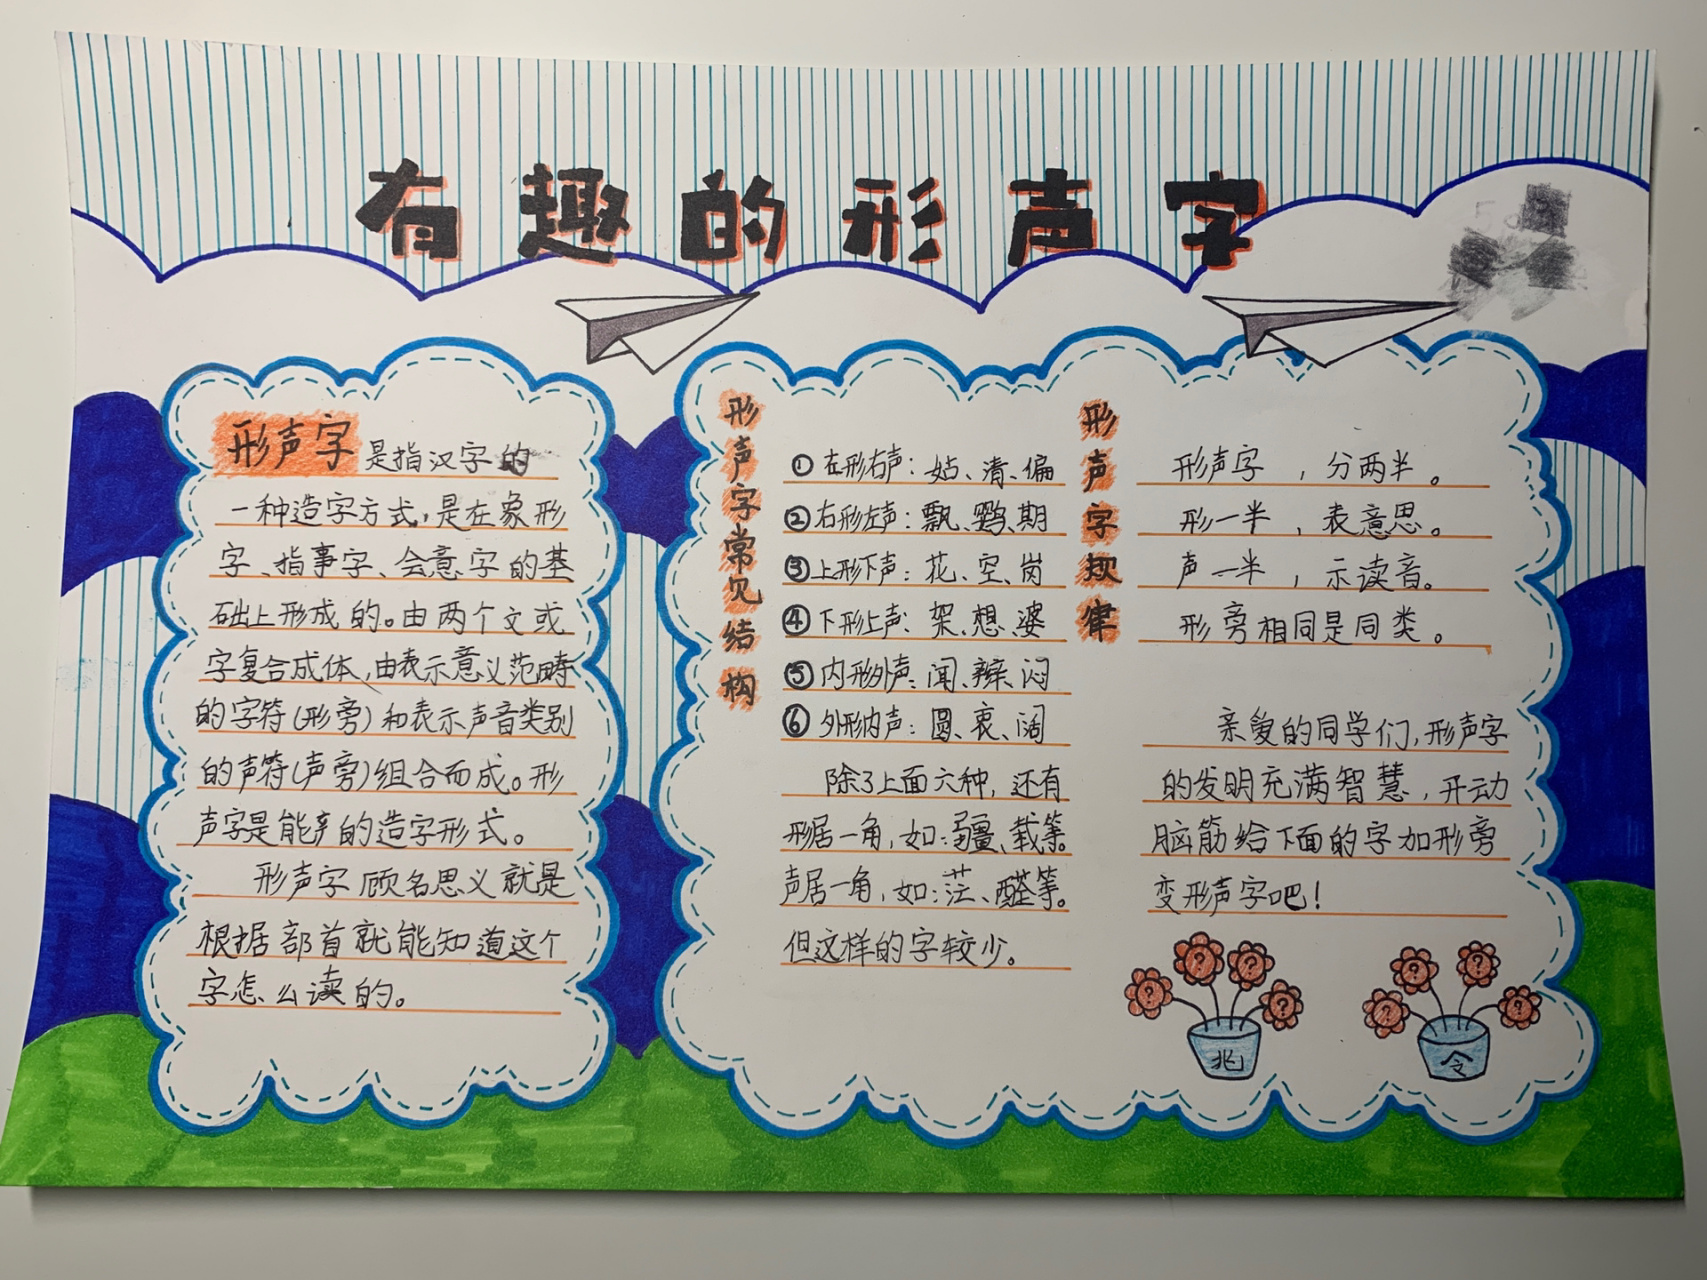 有趣的形声字
形声字是指汉字的
一种造字方式,是在象形
字、指事字、会意字的基
础上形成的。由两个文或
字复合成体,由表示意义范畴
的字符(形旁)和表示声音类别
的声符(声旁)组合而成。形
声字是能产的造字形式。
形声字顾名思义就是
根据部首就能知道这个
字怎么读的。
形声字常见结构
①左形右声:姑、清、偏
②右形左声:飘、鹦、期
③上形下声:花、空、岗
④下形上声:架、想、婆
⑤内形外声:闻、辩、闷
⑥外形内声:圆、衷、阔
除了上面六种,还有
形居一角,如:疆、载等。
声居一角,如:茫、醛等。
但这样的字较少。
形声字规律
形声字,分两半。
形一半,表意思。
声一半,示读音。
形旁相同是同类。
亲爱的同学们,形声字
的发明充满智慧,开动
脑筋给下面的字加形旁
变形声字吧!
? ? ? ?
兆
? ? ? ?
令